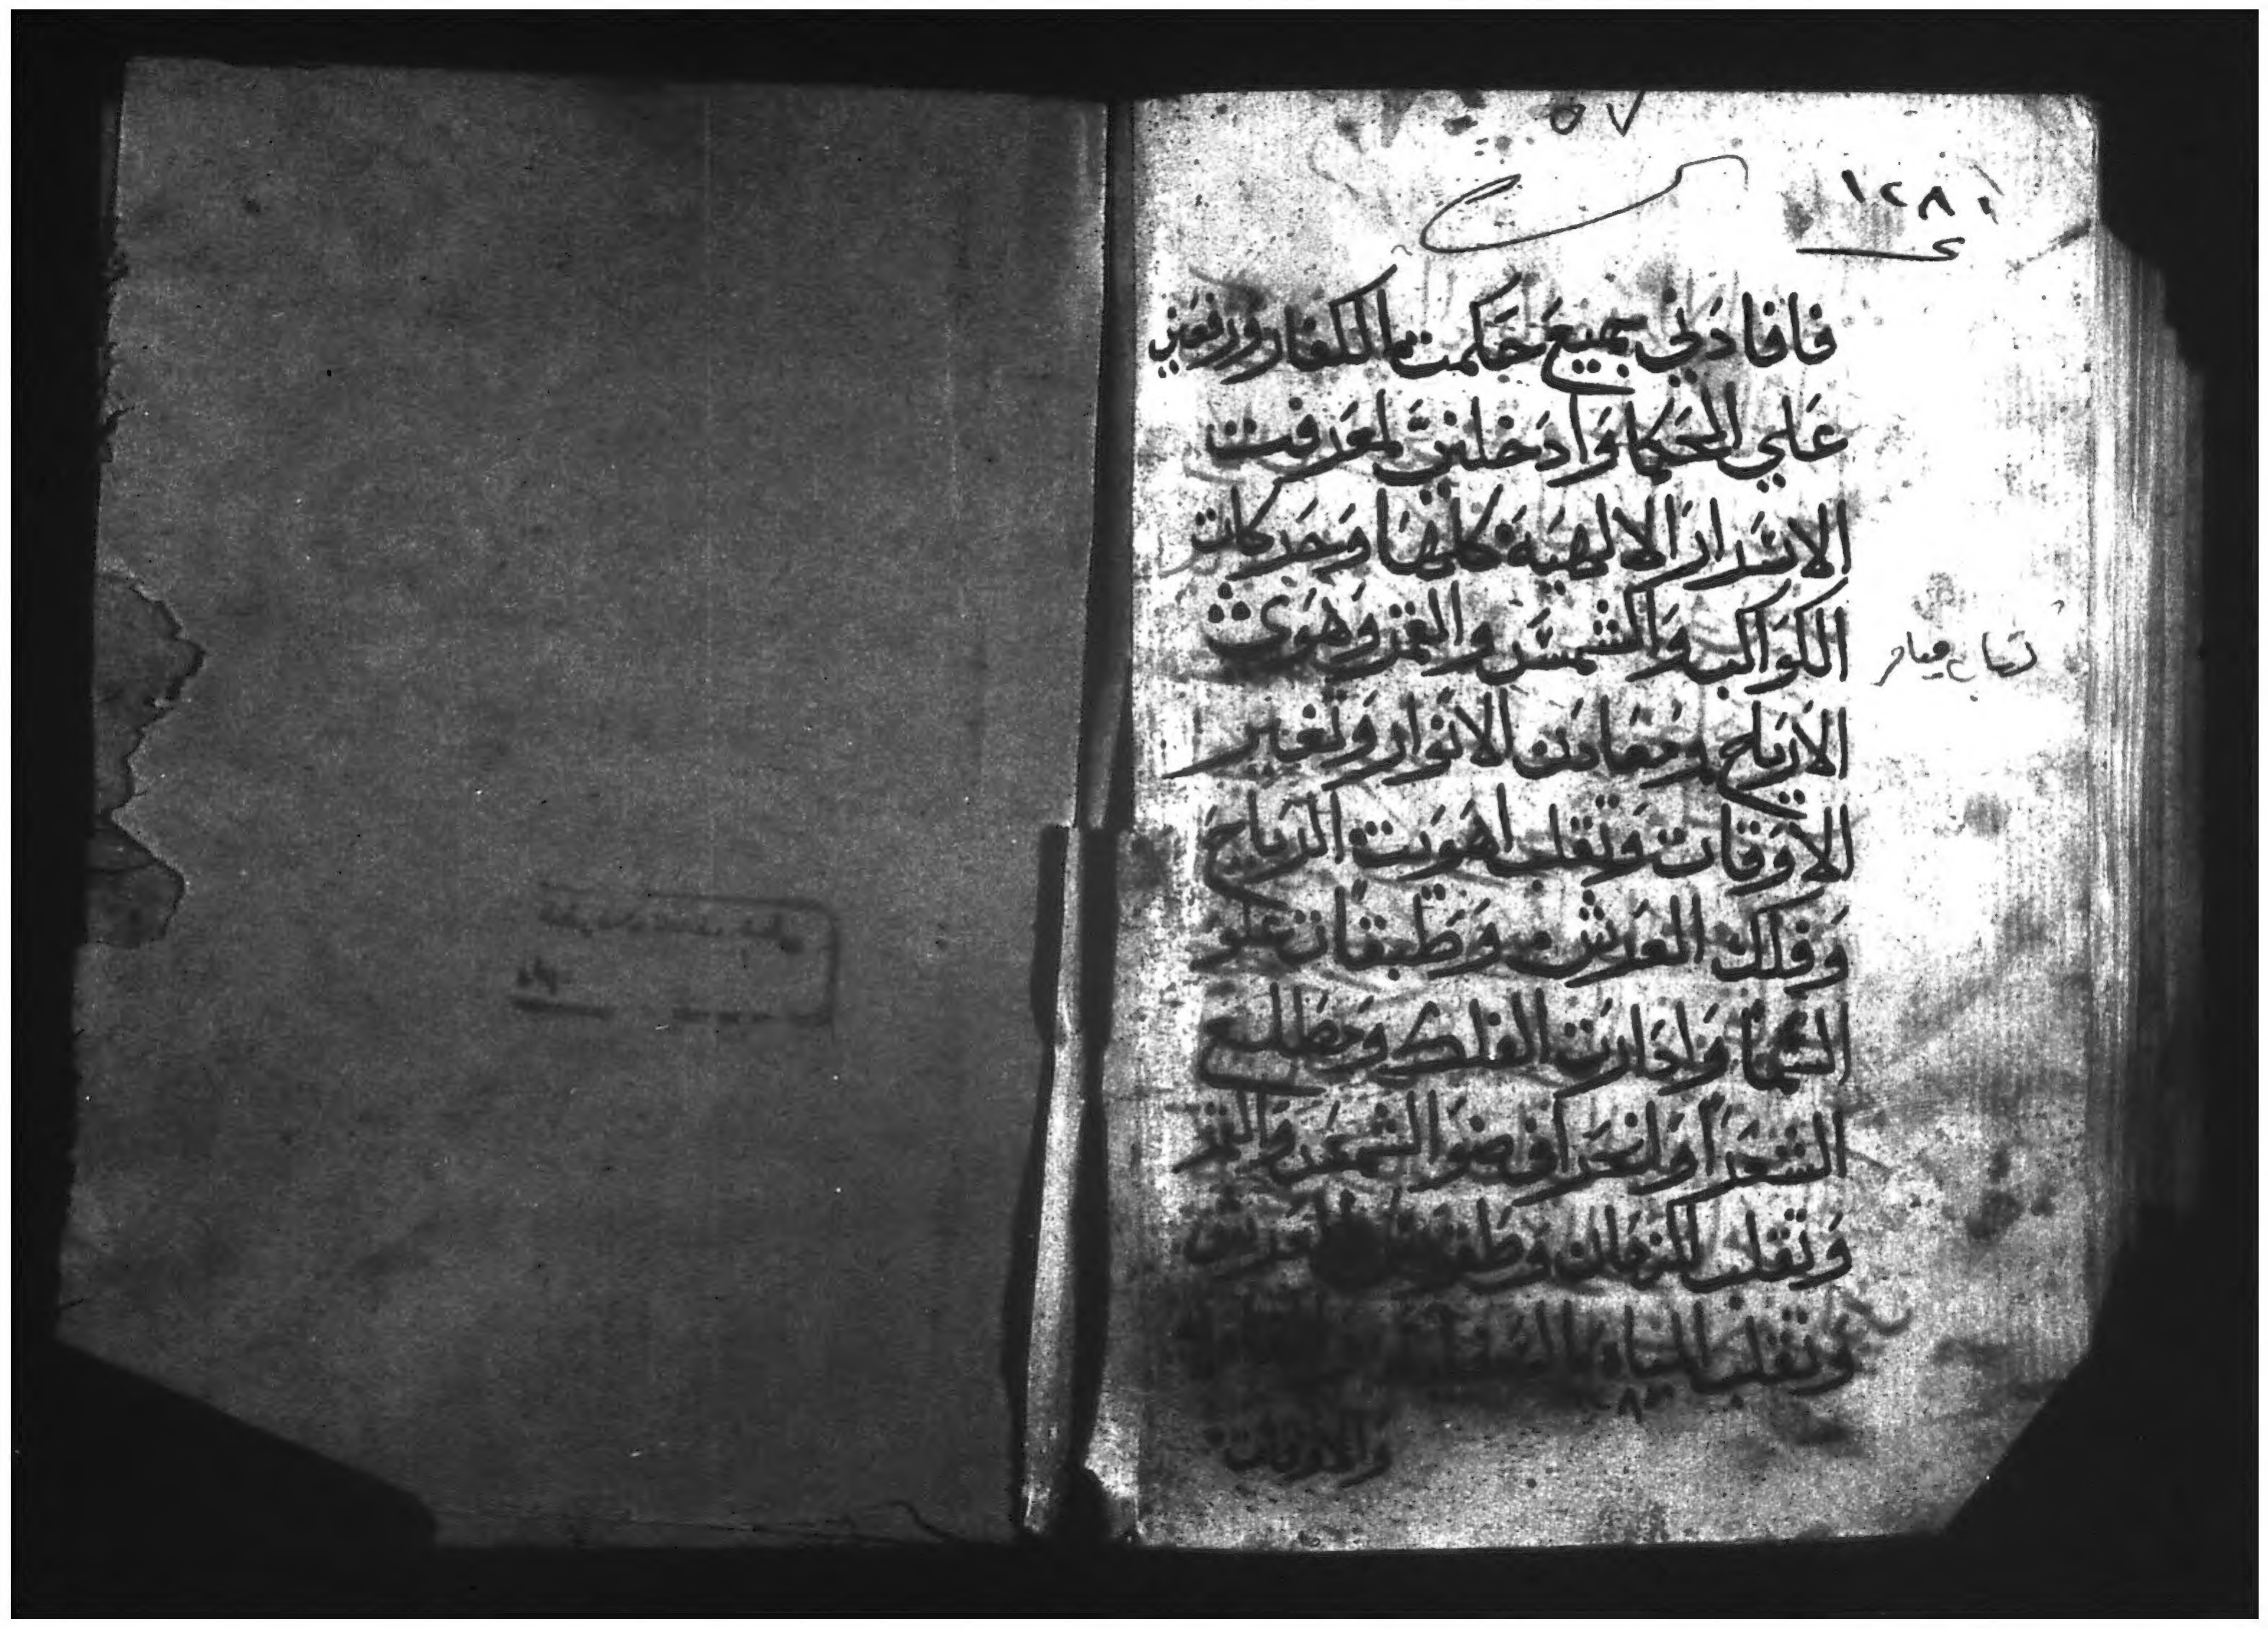 ٥٧
١٢٨٠
فافادني بجميع حكمت الكفار ورفعني
علي الحكما وادخلني لمعرفت
الاسرار الالهية كلها وحركات
الكواكب والشمس والقمر وهوى
الارياح ومعادن الانوار وتغير
الاوقات وتقلب اهويت الرياح
وفلك العرش وطبقات علو
السما وادارت الفلك ومطلع
الشعرا وانحراف ضو الشمس والقمر
وتقلب الزمان العرش
وتقلب المياه
والاوقات